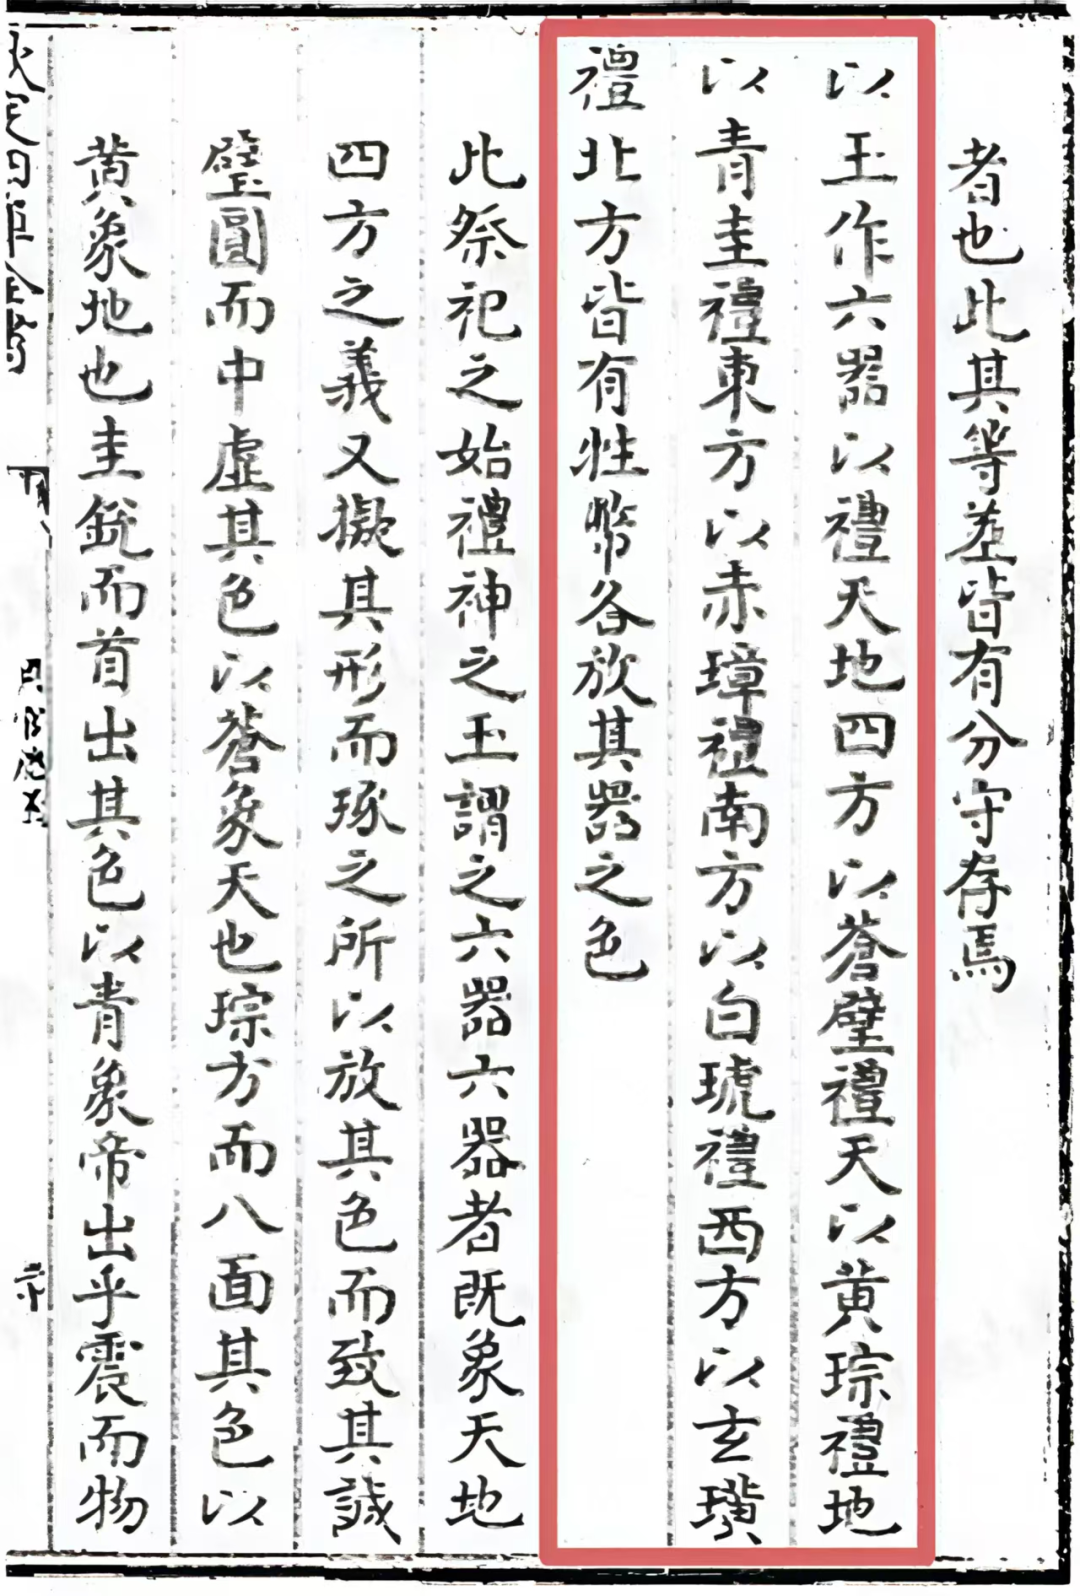 者也此其等差皆有分守存焉
以玉作六器以禮天地四方以蒼璧禮天以黄琮禮地
以青圭禮東方以赤璋禮南方以白琥禮西方以玄璜
禮北方皆有牲幣各放其器之色
此祭祀之始禮神之玉謂之六器六器者既象天地
四方之義又擬其形而琢之所以放其色而致其誠
璧圓而中虛其色以蒼象天也琮方而八面其色以
黄象地也圭銳而首出其色以青象帝出乎震而物